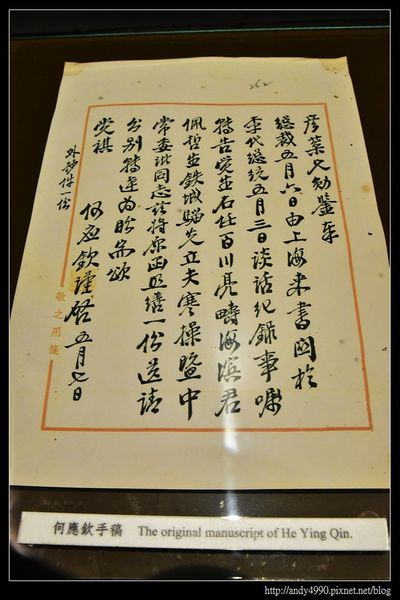 262
彥棻兄勛鑒奉
總裁五月六日由上海來書關於
李代總統五月三日談話紀錄事囑
特告覺生右任百川亮疇海濱君
佩哲生鐵城騮先立夫寒操暨中
常委諸同志茲將原函照繕一份送請
分別轉達為盼耑頌
黨祺
何應欽謹啓五月七日
外抄件一份
敬之用箋
何應欽手稿 The original manuscript of He Ying Qin.
http://andy4990.pixnet.net/blog